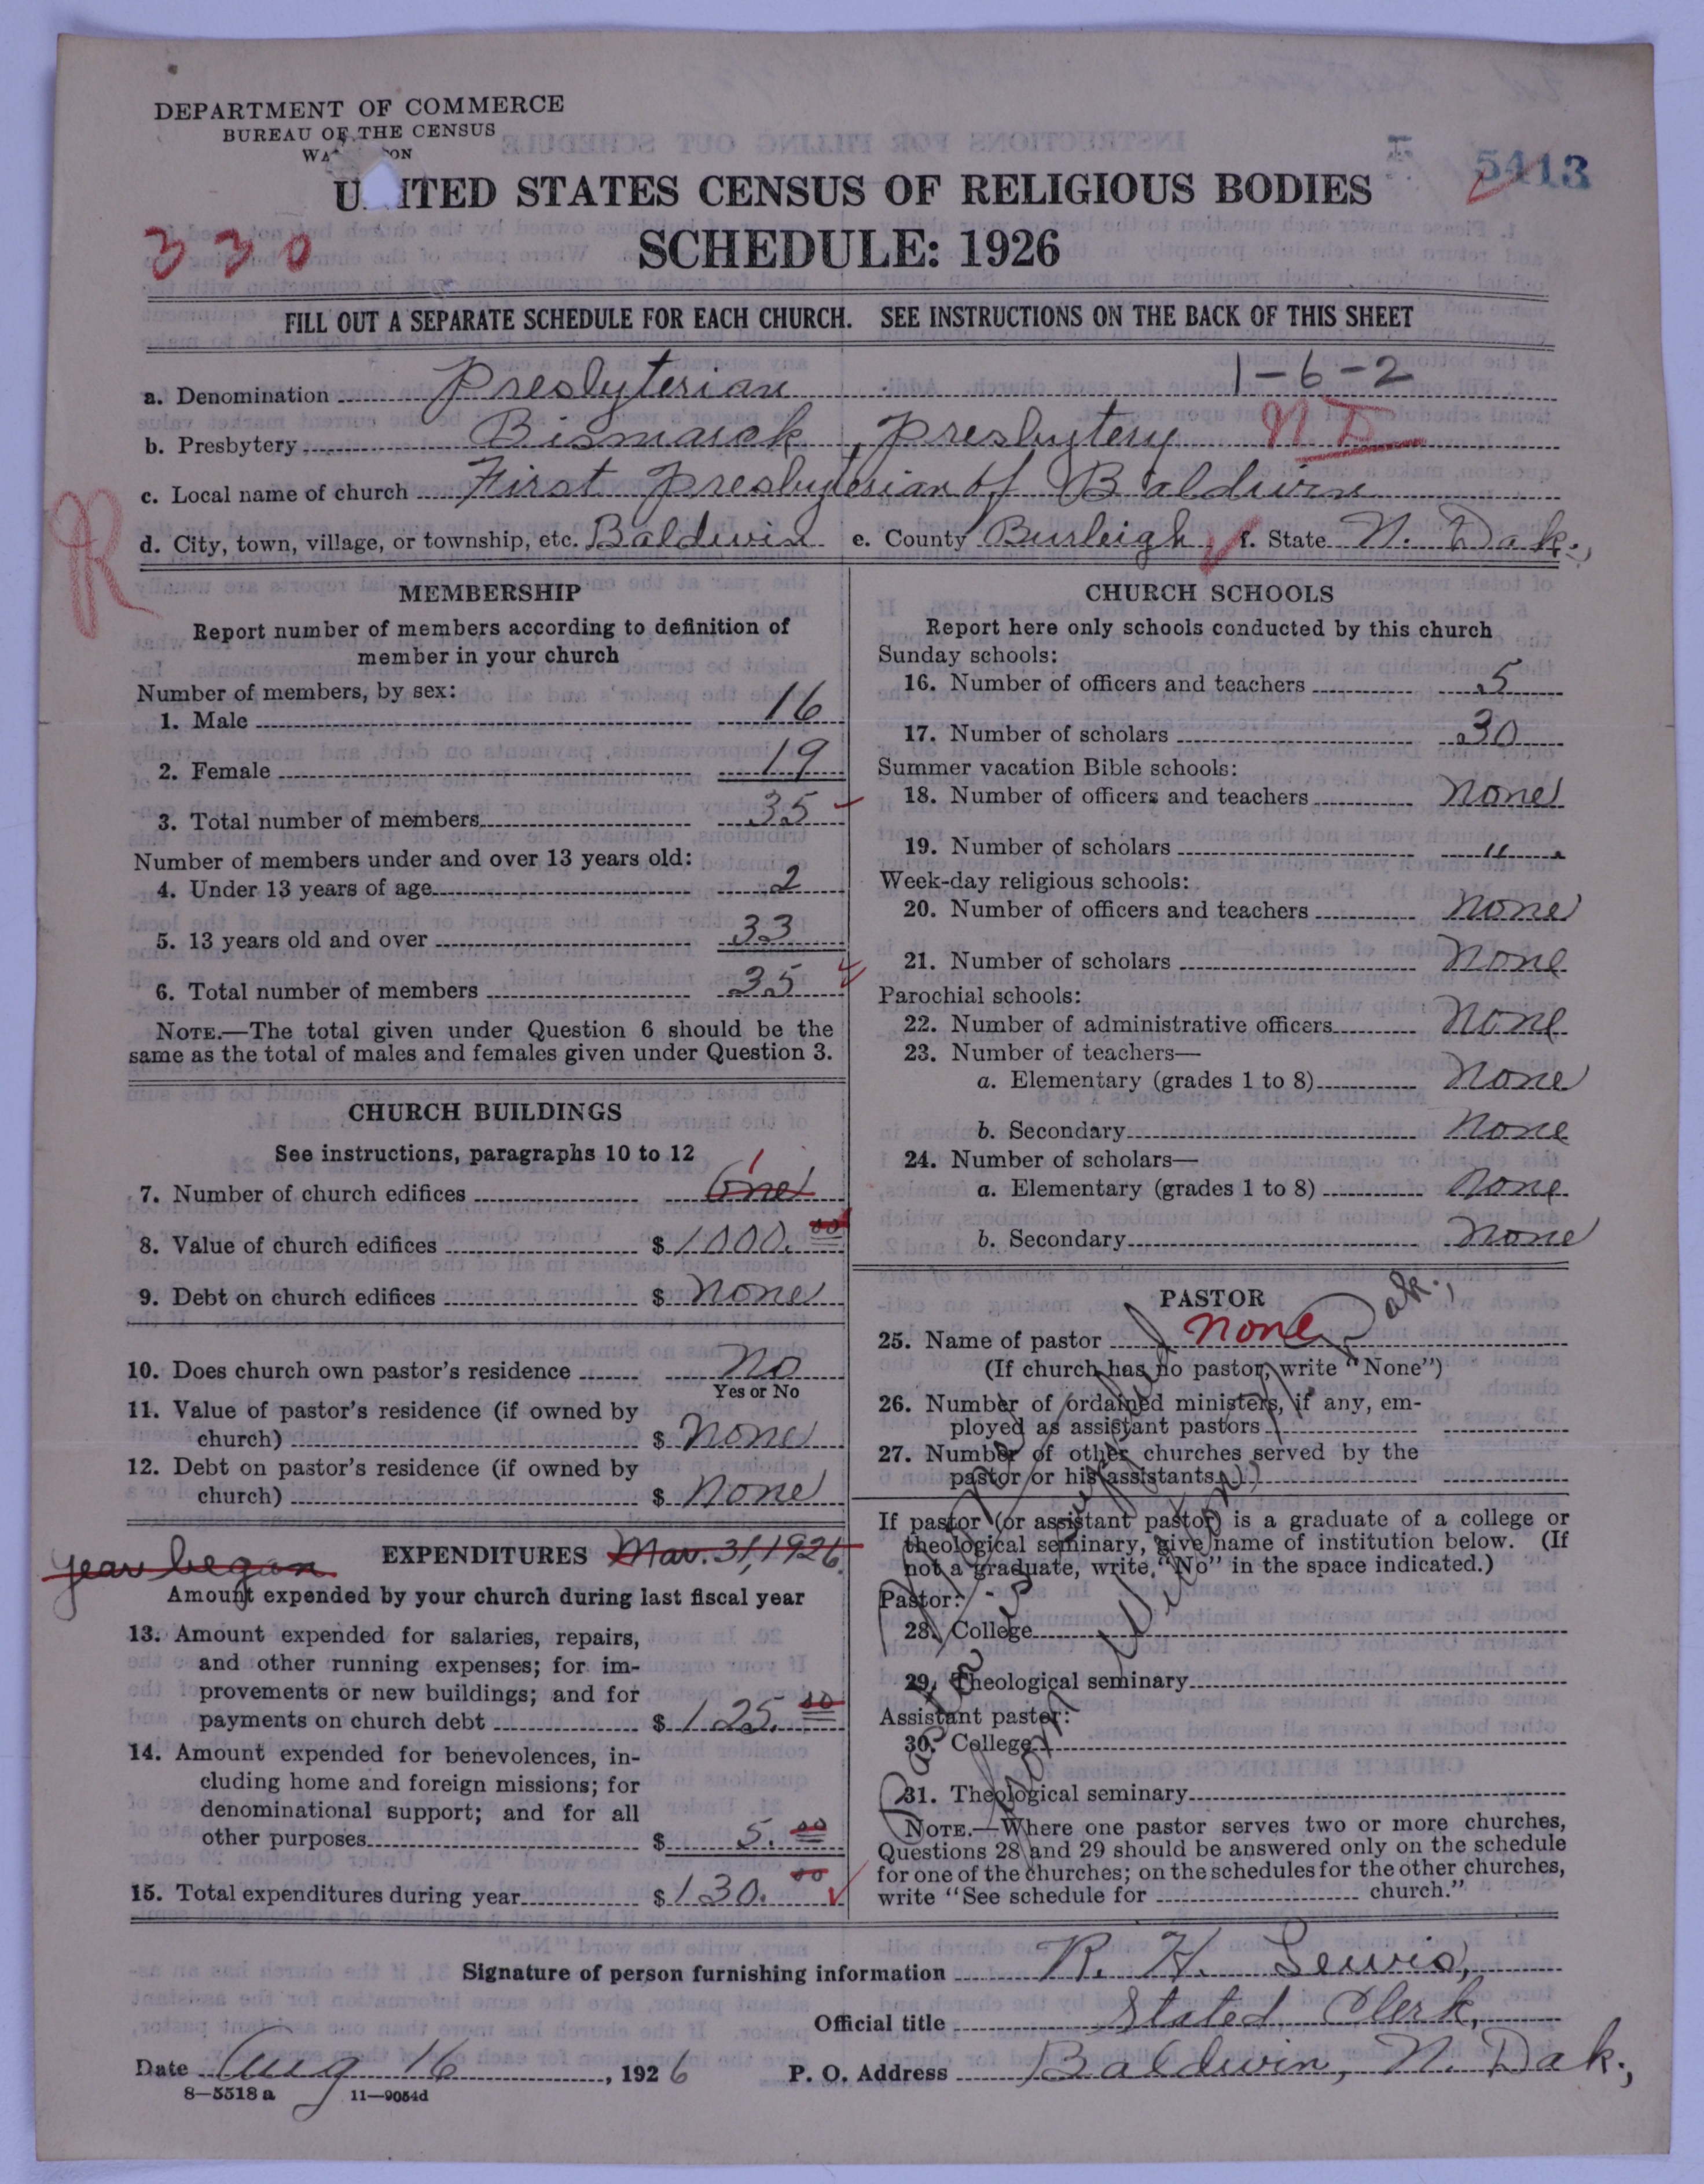 DEPARTMENT OF COMMERCE
BUREAU OF THE CENSUS
5413
UNITED STATES CENSUS OF RELIGIOUS BODIES
330
SCHEDULE: 1926
FILL OUT A SEPARATE SCHEDULE FOR EACH CHURCH. SEE INSTRUCTIONS ON THE BACK OF THIS SHEET
1-6-2
a. Denomination Presbyterian
b. Presbytery Bismarck, Presbytery ND
c. Local name of church First Presbyterian of Baldwin
R
d. City, town, village, or township, etc. Baldwin e. County Burleigh f. State N. Dak.,
MEMBERSHIP
Report number of members according to definition of
member in your church
Number of members, by sex:
1. Male 16
2. Female 19
3. Total number of members 35
Number of members under and over 13 years old:
4. Under 13 years of age 2
5. 13 years old and over 33
6. Total number of members 35
NOTE.—The total given under Question 6 should be the
same as the total of males and females given under Question 3.
CHURCH BUILDINGS
See instructions, paragraphs 10 to 12
7. Number of church edifices One 1
8. Value of church edifices $ 1000.00
9. Debt on church edifices $ None
10. Does church own pastor's residence No
Yes or No
11. Value of pastor's residence (if owned by
church) $ None
12. Debt on pastor's residence (if owned by
church) $ None
year began EXPENDITURES Mar. 31, 1926.
Amount expended by your church during last fiscal year
13. Amount expended for salaries, repairs,
and other running expenses; for im-
provements or new buildings; and for
payments on church debt $ 125.00
14. Amount expended for benevolences, in-
cluding home and foreign missions; for
denominational support; and for all
other purposes $ 5.00
15. Total expenditures during year $ 130.00
CHURCH SCHOOLS
Report here only schools conducted by this church
Sunday schools:
16. Number of officers and teachers 5
17. Number of scholars 30
Summer vacation Bible schools:
18. Number of officers and teachers None
19. Number of scholars "
Week-day religious schools:
20. Number of officers and teachers None
21. Number of scholars None
Parochial schools:
22. Number of administrative officers None
23. Number of teachers—
a. Elementary (grades 1 to 8) None
b. Secondary None
24. Number of scholars—
a. Elementary (grades 1 to 8) None
b. Secondary None
PASTOR
25. Name of pastor None
(If church has no pastor, write "None")
26. Number of ordained ministers, if any, em-
ployed as assistant pastors
27. Number of other churches served by the
pastor or his assistants
If pastor (or assistant pastor) is a graduate of a college or
theological seminary, give name of institution below. (If
not a graduate, write "No" in the space indicated.)
Pastor:
28. College
29. Theological seminary
Assistant pastor:
30. College
31. Theological seminary
NOTE.—Where one pastor serves two or more churches,
Questions 28 and 29 should be answered only on the schedule
for one of the churches; on the schedules for the other churches,
write "See schedule for church."
Pastor is
Wilton
Dak.,
Signature of person furnishing information R. H. Lewis,
Official title Stated Clerk,
Date Aug 16, 1926 P. O. Address Baldwin, N. Dak.,
8—5518 a 11—9054d